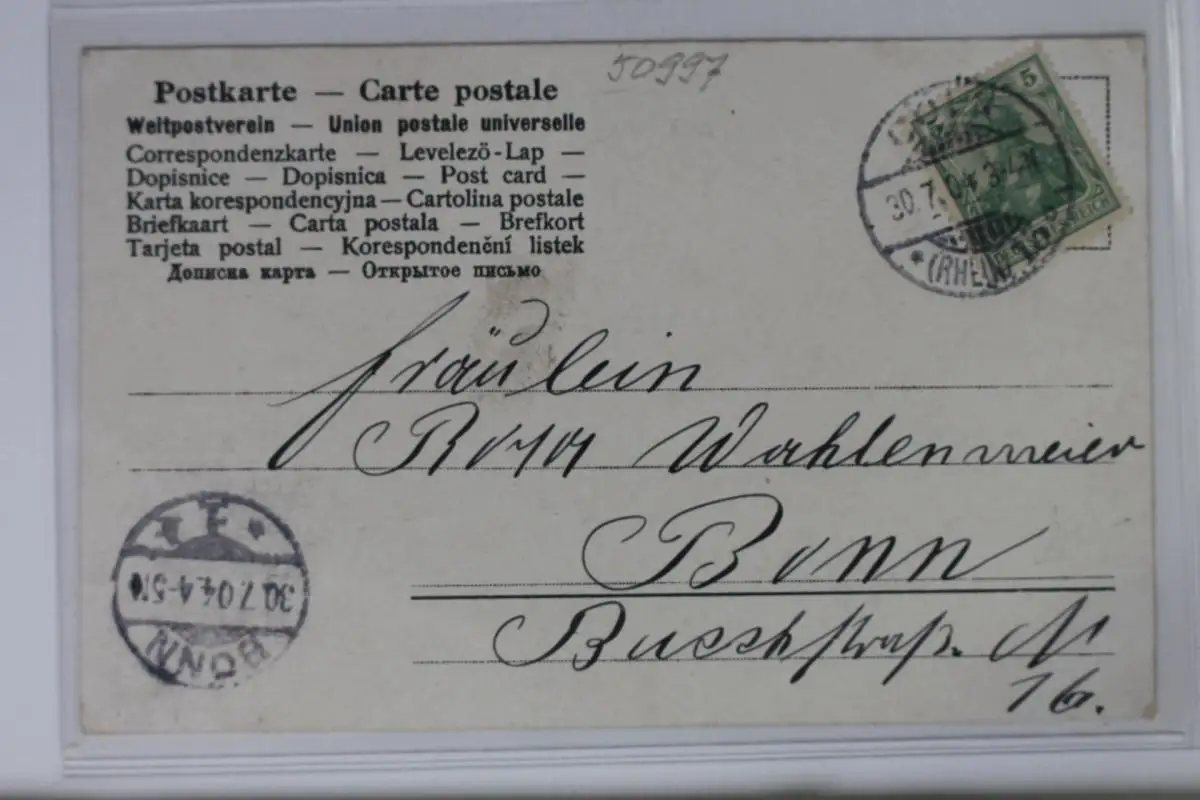 50997
Postkarte — Carte postale
Weltpostverein — Union postale universelle
Correspondenzkarte — Levelezö-Lap —
Dopisnice — Dopisnica — Post card —
Karta korespondencyjna — Cartolina postale
Briefkaart — Carta postala — Brefkort
Tarjeta postal — Korespondenční listek
Дописна карта — Открытое письмо
5
REICH
30.7.04 3-4N
(RHEIN)
Fräulein
Rosa Wahlenmeier
Bonn
Buschstraß. N
16.
30.7.04.4-5N
BONN